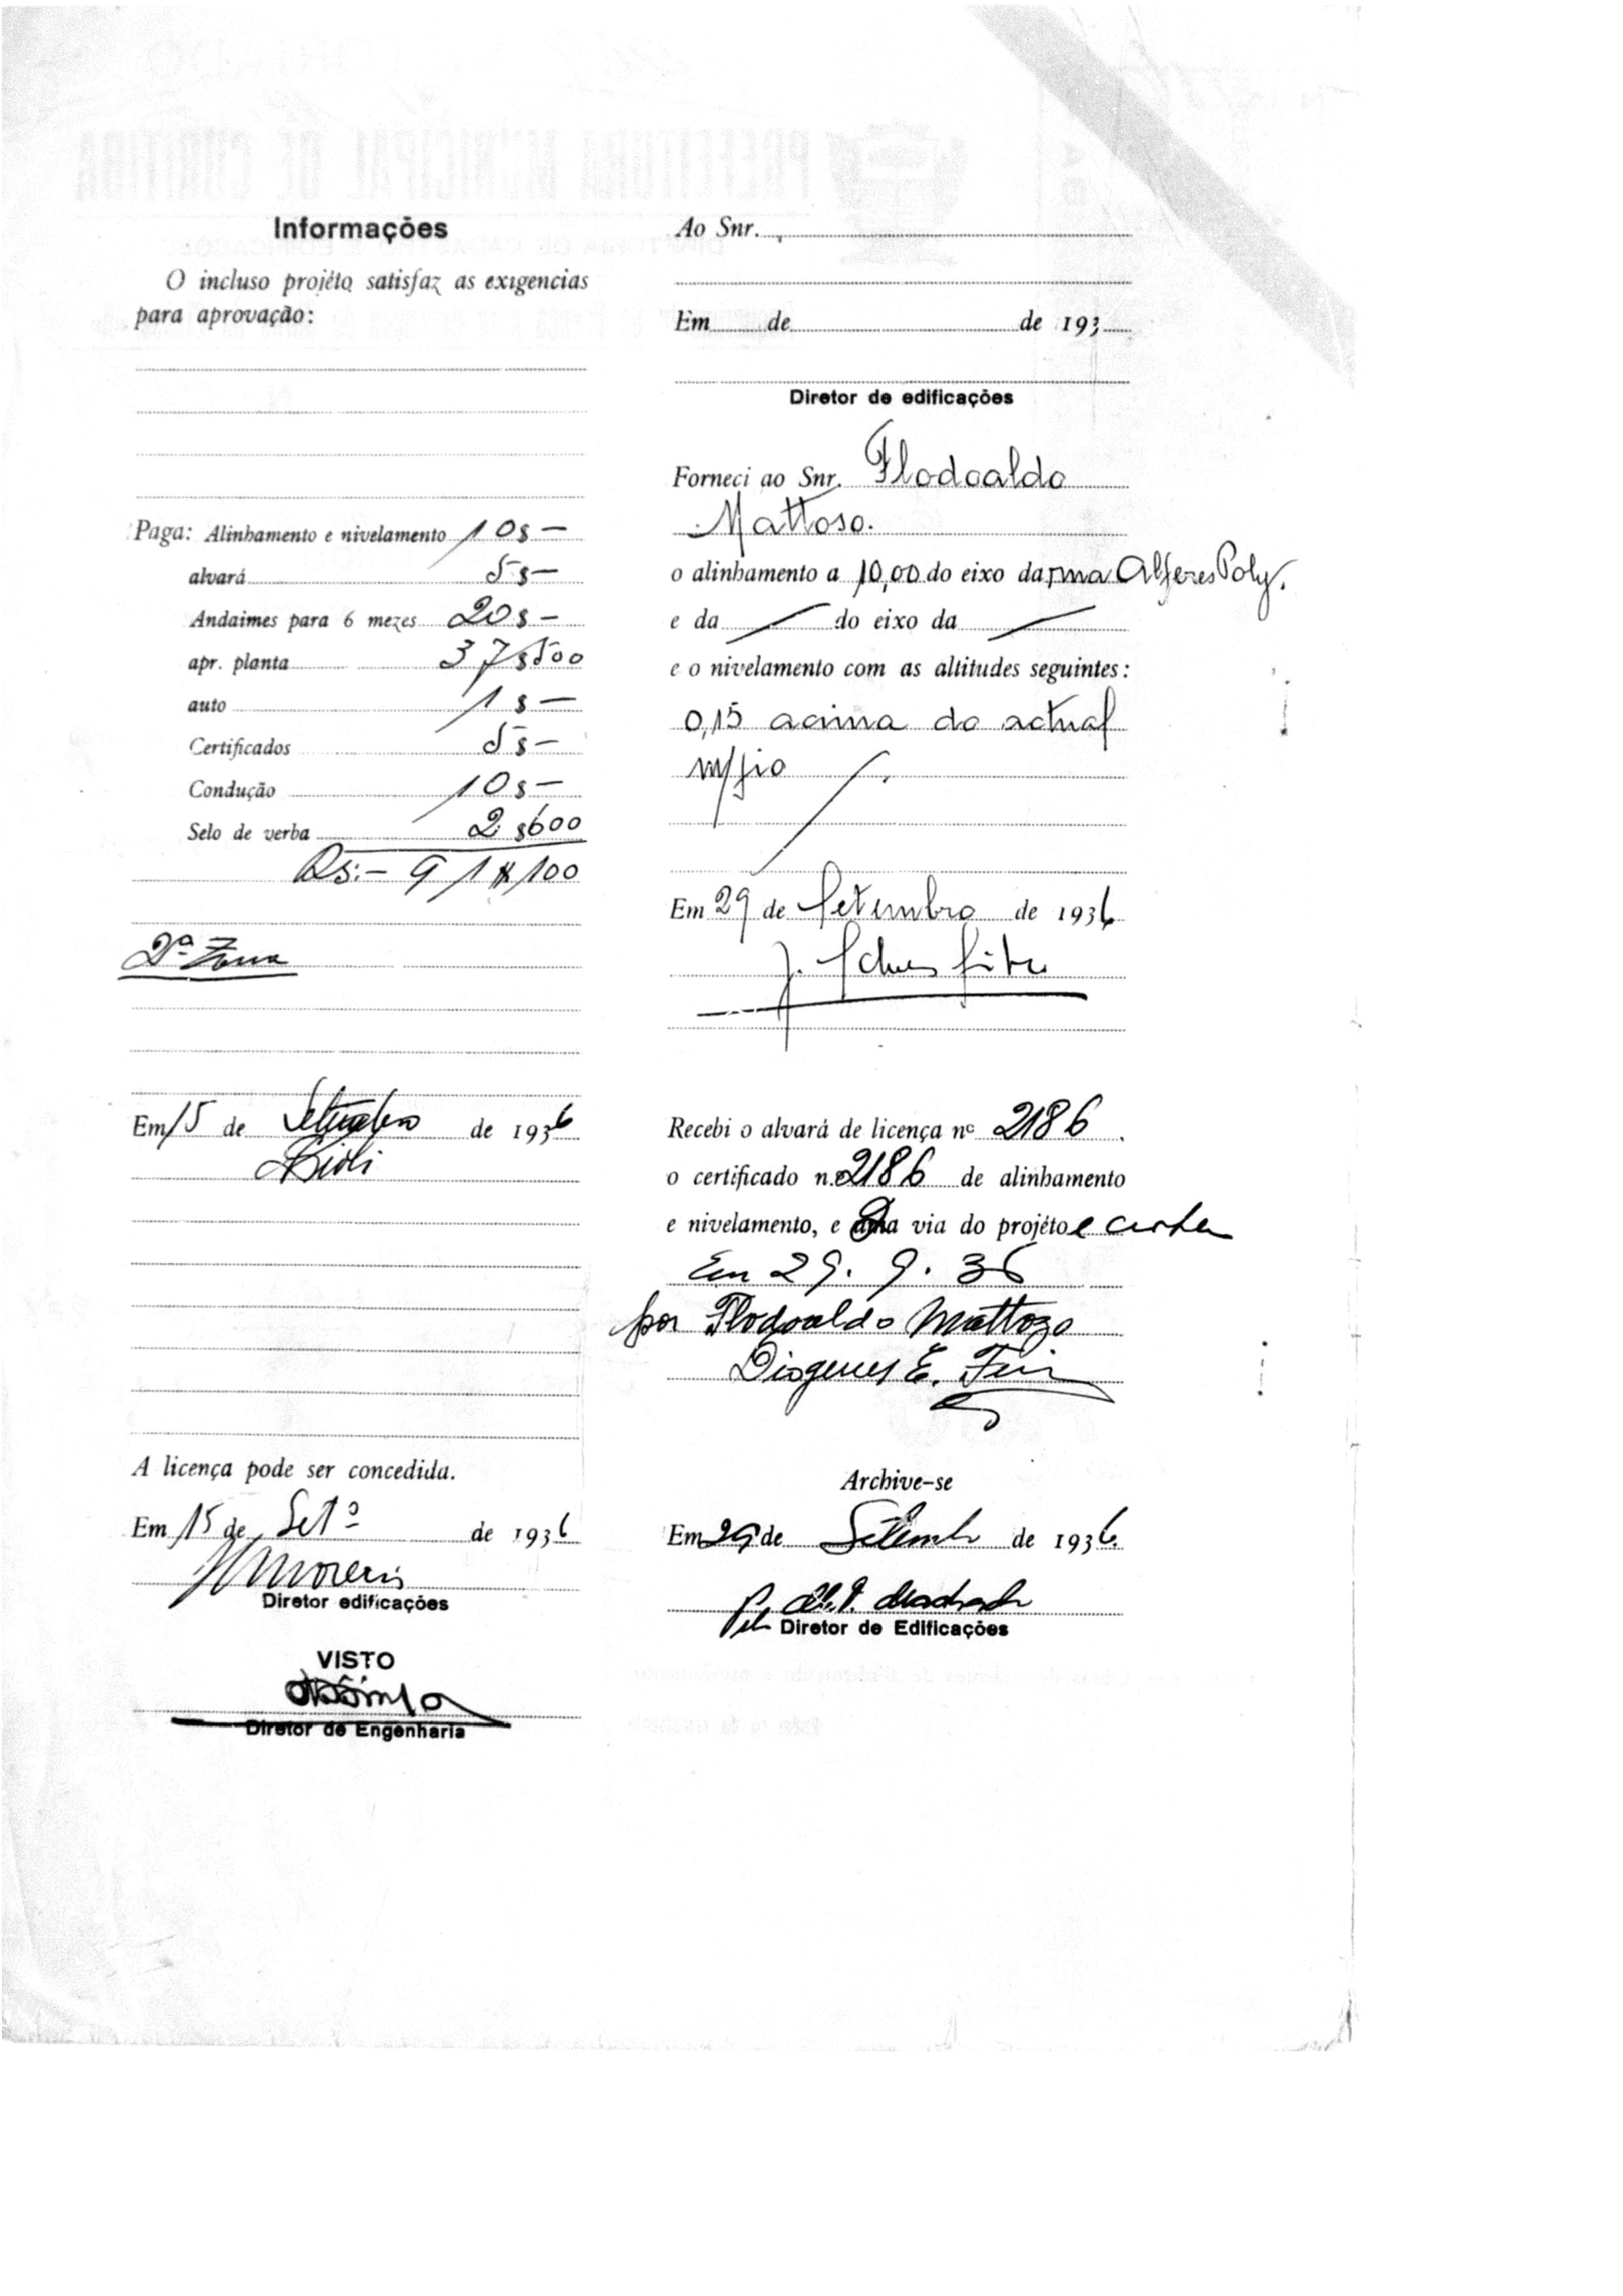 Informações
O incluso projéto satisfaz as exigencias
para aprovação:
Paga: Alinhamento e nivelamento 10$—
alvará 5$—
Andaimes para 6 mezes 20$—
apr. planta 37$500
auto 1$—
Certificados 5$—
Condução 10$—
Selo de verba 2$600
Rs:— 91$100
2ª Zona
Em 15 de Setembro de 1936
A licença pode ser concedida.
Em 15 de Setº de 1936
Diretor edificações
VISTO
Diretor de Engenharia
Ao Snr.
Em de de 193
Diretor de edificações
Forneci ao Snr. Flodoaldo
Mattoso.
o alinhamento a 10,00 do eixo da rua Alferes Poly.
e da — do eixo da —
e o nivelamento com as altitudes seguintes:
0,15 acima do actual
m/fio
Em 29 de Setembro de 1936
J.
Recebi o alvará de licença nº 2186
o certificado n.º 2186 de alinhamento
e nivelamento, e via do projéto e
Em 29. 9. 36
por Flodoaldo Mattozo
Diogenes E.
Archive-se
Em 29 de Setembro de 1936.
Diretor de Edificações
PREFEITURA MUNICIPAL DE CURITIBA